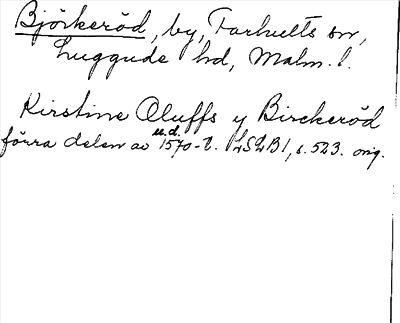 Björkeröd, by, Farhults sn,
Luggude hd, Malm. l.
Kirstine Oluffs y Birckeröd
u.d.
förra delen av 1570-t. LSLB1, s. 523. orig.